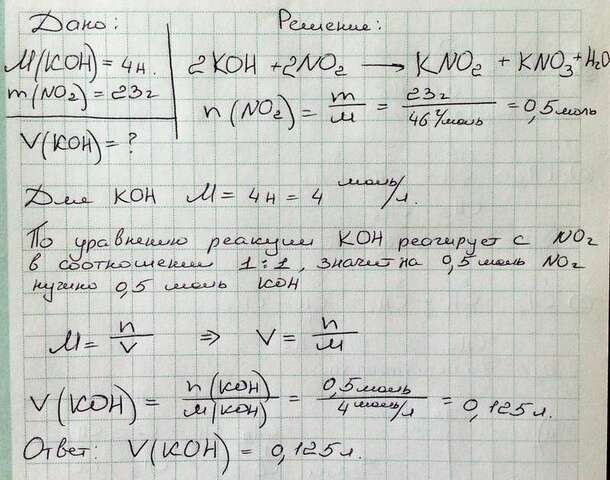 Дано:
Решение:
M(KOH) = 4н.
m(NO₂) = 23г
V(KOH) = ?
2KOH + 2NO₂ → KNO₂ + KNO₃ + H₂O
n(NO₂) = m/M = 23г / 46 г/моль = 0,5 моль
Для KOH M = 4н = 4 моль/л.
По уравнению реакции KOH реагирует с NO₂
в соотношении 1:1, значит на 0,5 моль NO₂
нужно 0,5 моль KOH
M = n/V ⇒ V = n/M
V(KOH) = n(KOH)/M(KOH) = 0,5моль / 4моль/л = 0,125л.
Ответ: V(KOH) = 0,125л.